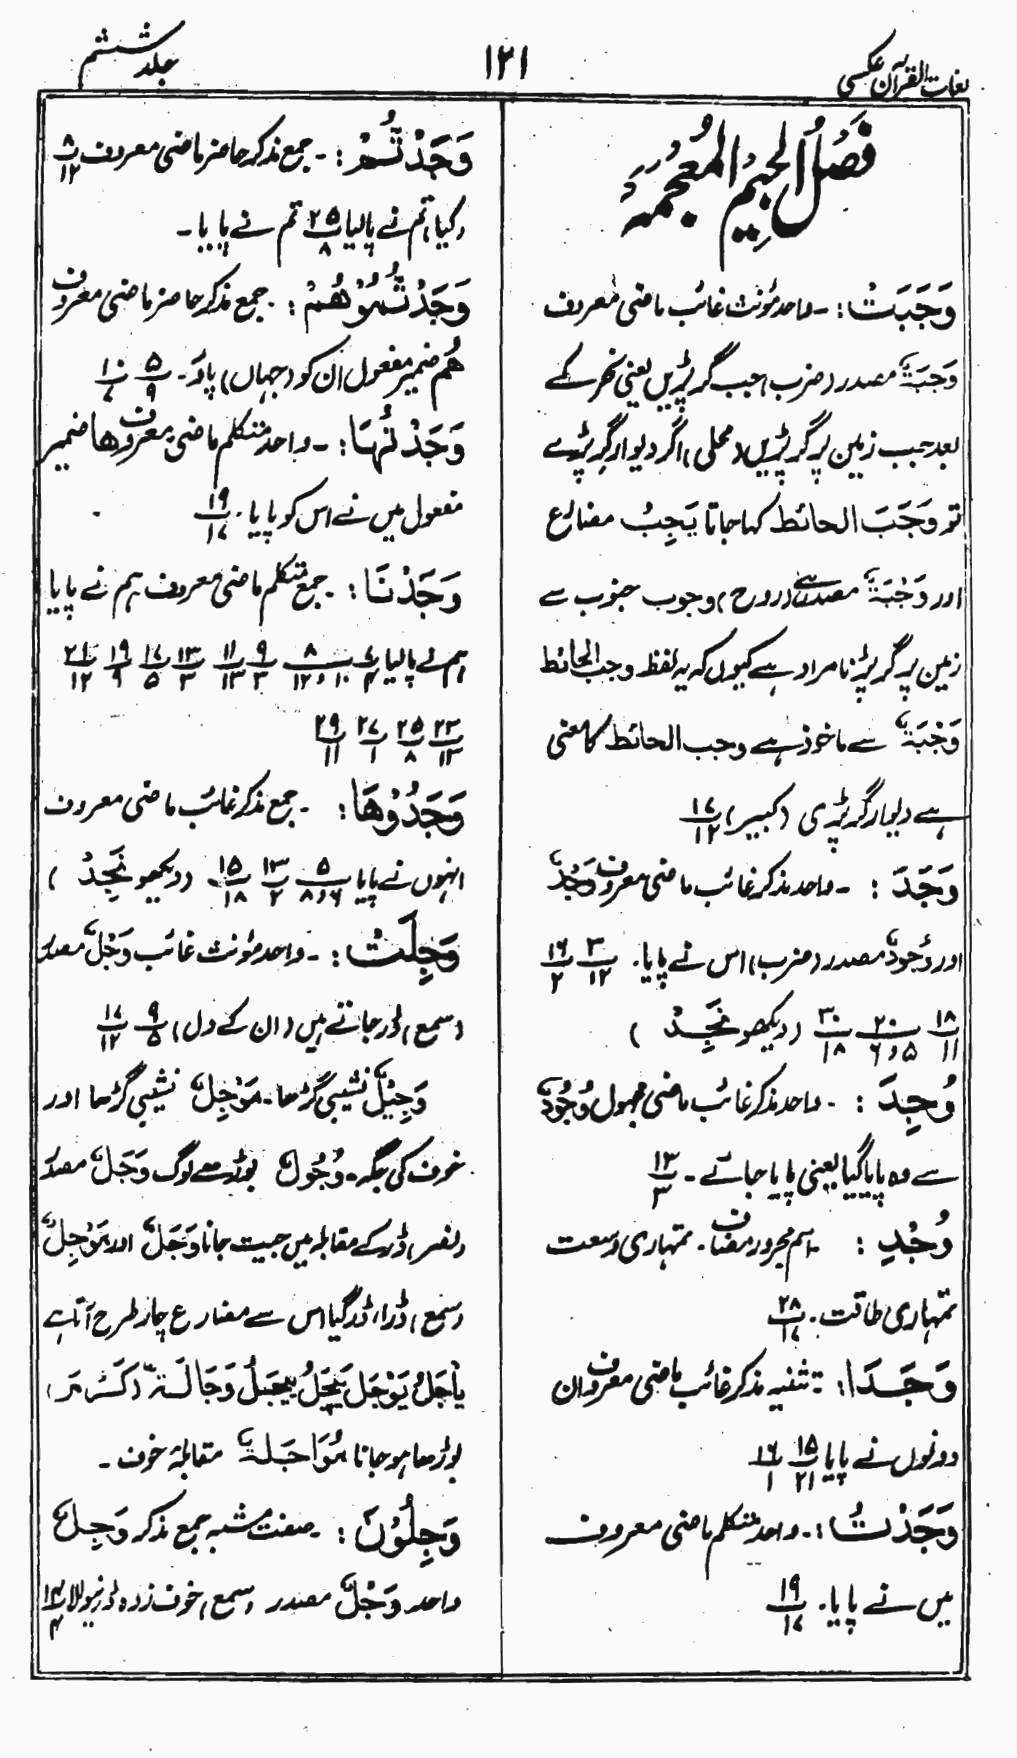 لغات القرآن عکسی
۱۲۱
جلد ششم
فَصْلُ الْجِيْمِ الْمُعْجَمَةِ
وَجَبَتْ : ۔ واحد مؤنث غائب ماضی معروف
وَجْبَةٌ مصدر (ضرب) جب گر پڑیں یعنی نحر کے
بعد جب زمین پر گر پڑیں (محلی) اگر دیوار گر پڑے
تو وَجَبَ الحائط کہا جاتا یَجِبُ مضارع
اور وَجْبَةٌ مصدر ہے (روح) وجوب جنوب سے
زمین پر گر پڑنا مراد ہے کیوں کہ یہ لفظ وجب الحائط
وَجْبَةٌ سے ماخوذ ہے وجب الحائط کا معنی
ہے دیوار گر پڑی (کبیر) ۱۷/۱۲
وَجَدَ : ۔ واحد مذکر غائب ماضی معروف وَجْدٌ
اور وُجُودٌ مصدر (ضرب) اس نے پایا۔ ۳/۱۲ ۱۶/۲
۱۸/۱۱ ۲۰/۵،۶ ۳۰/۱۸ (دیکھو نَجِدْ )
وُجِدَ : ۔ واحد مذکر غائب ماضی مجہول وُجُوْدٌ
سے وہ پایا گیا یعنی پایا جائے ۔ ۱۳/۳
وُجْدِ : ۔ اسم مجرور مضاف ۔ تمہاری وسعت
تمہاری طاقت ۔ ۲۸/۱۷
وَجَدَا : تثنیہ مذکر غائب ماضی معروف ان
دونوں نے پایا ۱۵/۲۱ ۱۶/۱
وَجَدْتُ : ۔ واحد متکلم ماضی معروف
میں نے پایا۔ ۱۹/۱۷
وَجَدْتُّمْ : ۔ جمع مذکر حاضر ماضی معروف ۸/۱۲
(کیا) تم نے پالیا ۲۵/۸ تم نے پایا ۔
وَجَدْتُّمُوْهُمْ : ۔ جمع مذکر حاضر ماضی معروف
هُم ضمیر مفعول ان کو (جہاں) پاؤ ۔ ۵/۹ ۱۰/۷
وَجَدْتُهَا : ۔ واحد متکلم ماضی معروف ها ضمیر
مفعول میں نے اس کو پایا ۔ ۱۹/۱۷
وَجَدْنَا : ۔ جمع متکلم ماضی معروف ہم نے پایا
ہم نے پالیا ۷/۴ ۸/۱۰،۱۲ ۹/۳ ۱۱/۱۳ ۱۳/۳ ۱۷/۵ ۱۹/۹ ۲۱/۱۲
۲۳/۱۲ ۲۵/۸ ۲۷/۱ ۲۹/۱۱
وَجَدُوْهَا : ۔ جمع مذکر غائب ماضی معروف
انہوں نے پایا ۵/۸،۶ ۱۳/۲ ۱۵/۱۸ (دیکھو نَجِدُ )
وَجِلَتْ : ۔ واحد مؤنث غائب وَجَلٌ مصدر
(سمع) ڈر جاتے ہیں (ان کے دل) ۹/۵ ۱۷/۱۲
وَجِيْلٌ نشیبی گڑھا ۔ مَوْجِلٌ نشیبی گڑھا اور
خوف کی جگہ ۔ وُجُولٌ بوڑھے لوگ وَجَلٌ مصدر
(نصر) ڈر کے مقابلہ میں جیت جانا وَجَلٌ اور مَوْجِلٌ
(سمع) ڈرا، ڈر گیا اس سے مضارع چار طرح آتا ہے
يَأْجَلُ يَوْجَلُ يَيْجَلُ يِيْجَلُ وَجَالَةٌ (کَرُمَ)
بوڑھا ہو جانا مُوَاجَلَةٌ مقابلۂ خوف ۔
وَجِلُوْنَ : ۔ صفت مشبہ جمع مذکر وَجِلٌ
واحد وَجَلٌ مصدر (سمع) خوف زدہ ڈرنیوالا ۱۴/۴